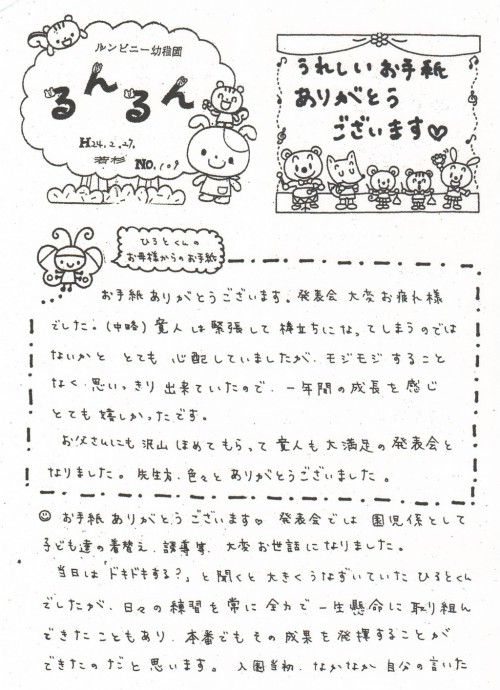 ルンビニー幼稚園
るんるん
H24.2.27.
若杉 No.109
うれしいお手紙
ありがとう
ございます♡
ひろとくんの
お母様からのお手紙
お手紙ありがとうございます。発表会 大変お疲れ様
でした。(中略) 寛人は緊張して棒立ちになってしまうのでは
ないかと とても 心配していましたが、モジモジすること
なく、思いっきり出来ていたので、一年間の成長を感じ
とても嬉しかったです。
お父さんにも沢山ほめてもらって寛人も大満足の発表会と
なりました。先生方、色々とありがとうございました。
☺ お手紙ありがとうございます♡ 発表会では 園児係として
子ども達の着替え、誘導等、大変お世話になりました。
当日は「ドキドキする?」と聞くと大きくうなずいていた ひろとくん
でしたが、日々の練習を常に全力で一生懸命に取り組ん
できたこともあり、本番でもその成果を発揮することが
できたのだと思います。入園当初、なかなか自分の言いた